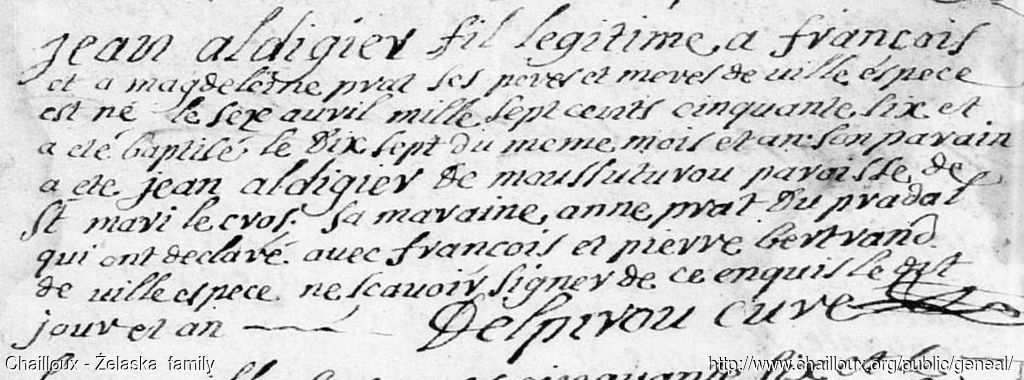 jean aldigier fil legitime a françois
et a magdeleine prat ses peres et meres de ville éspece
est né le seze auril mille sept cents cinquante six et
a eté baptisé le dix sept du meme mois et an: son parain
a ete jean aldigier de moussuturou paroisse de
St mari le cros. sa maraine anne prat du pradal
qui ont declaré avec françois et pierre bertrand
de ville espece ne scavoir signer de ce enquis le dit
jour et an Delpirou curé
Chailloux - Żelaska family
http://www.chailloux.org/public/geneal/
cinquante six et